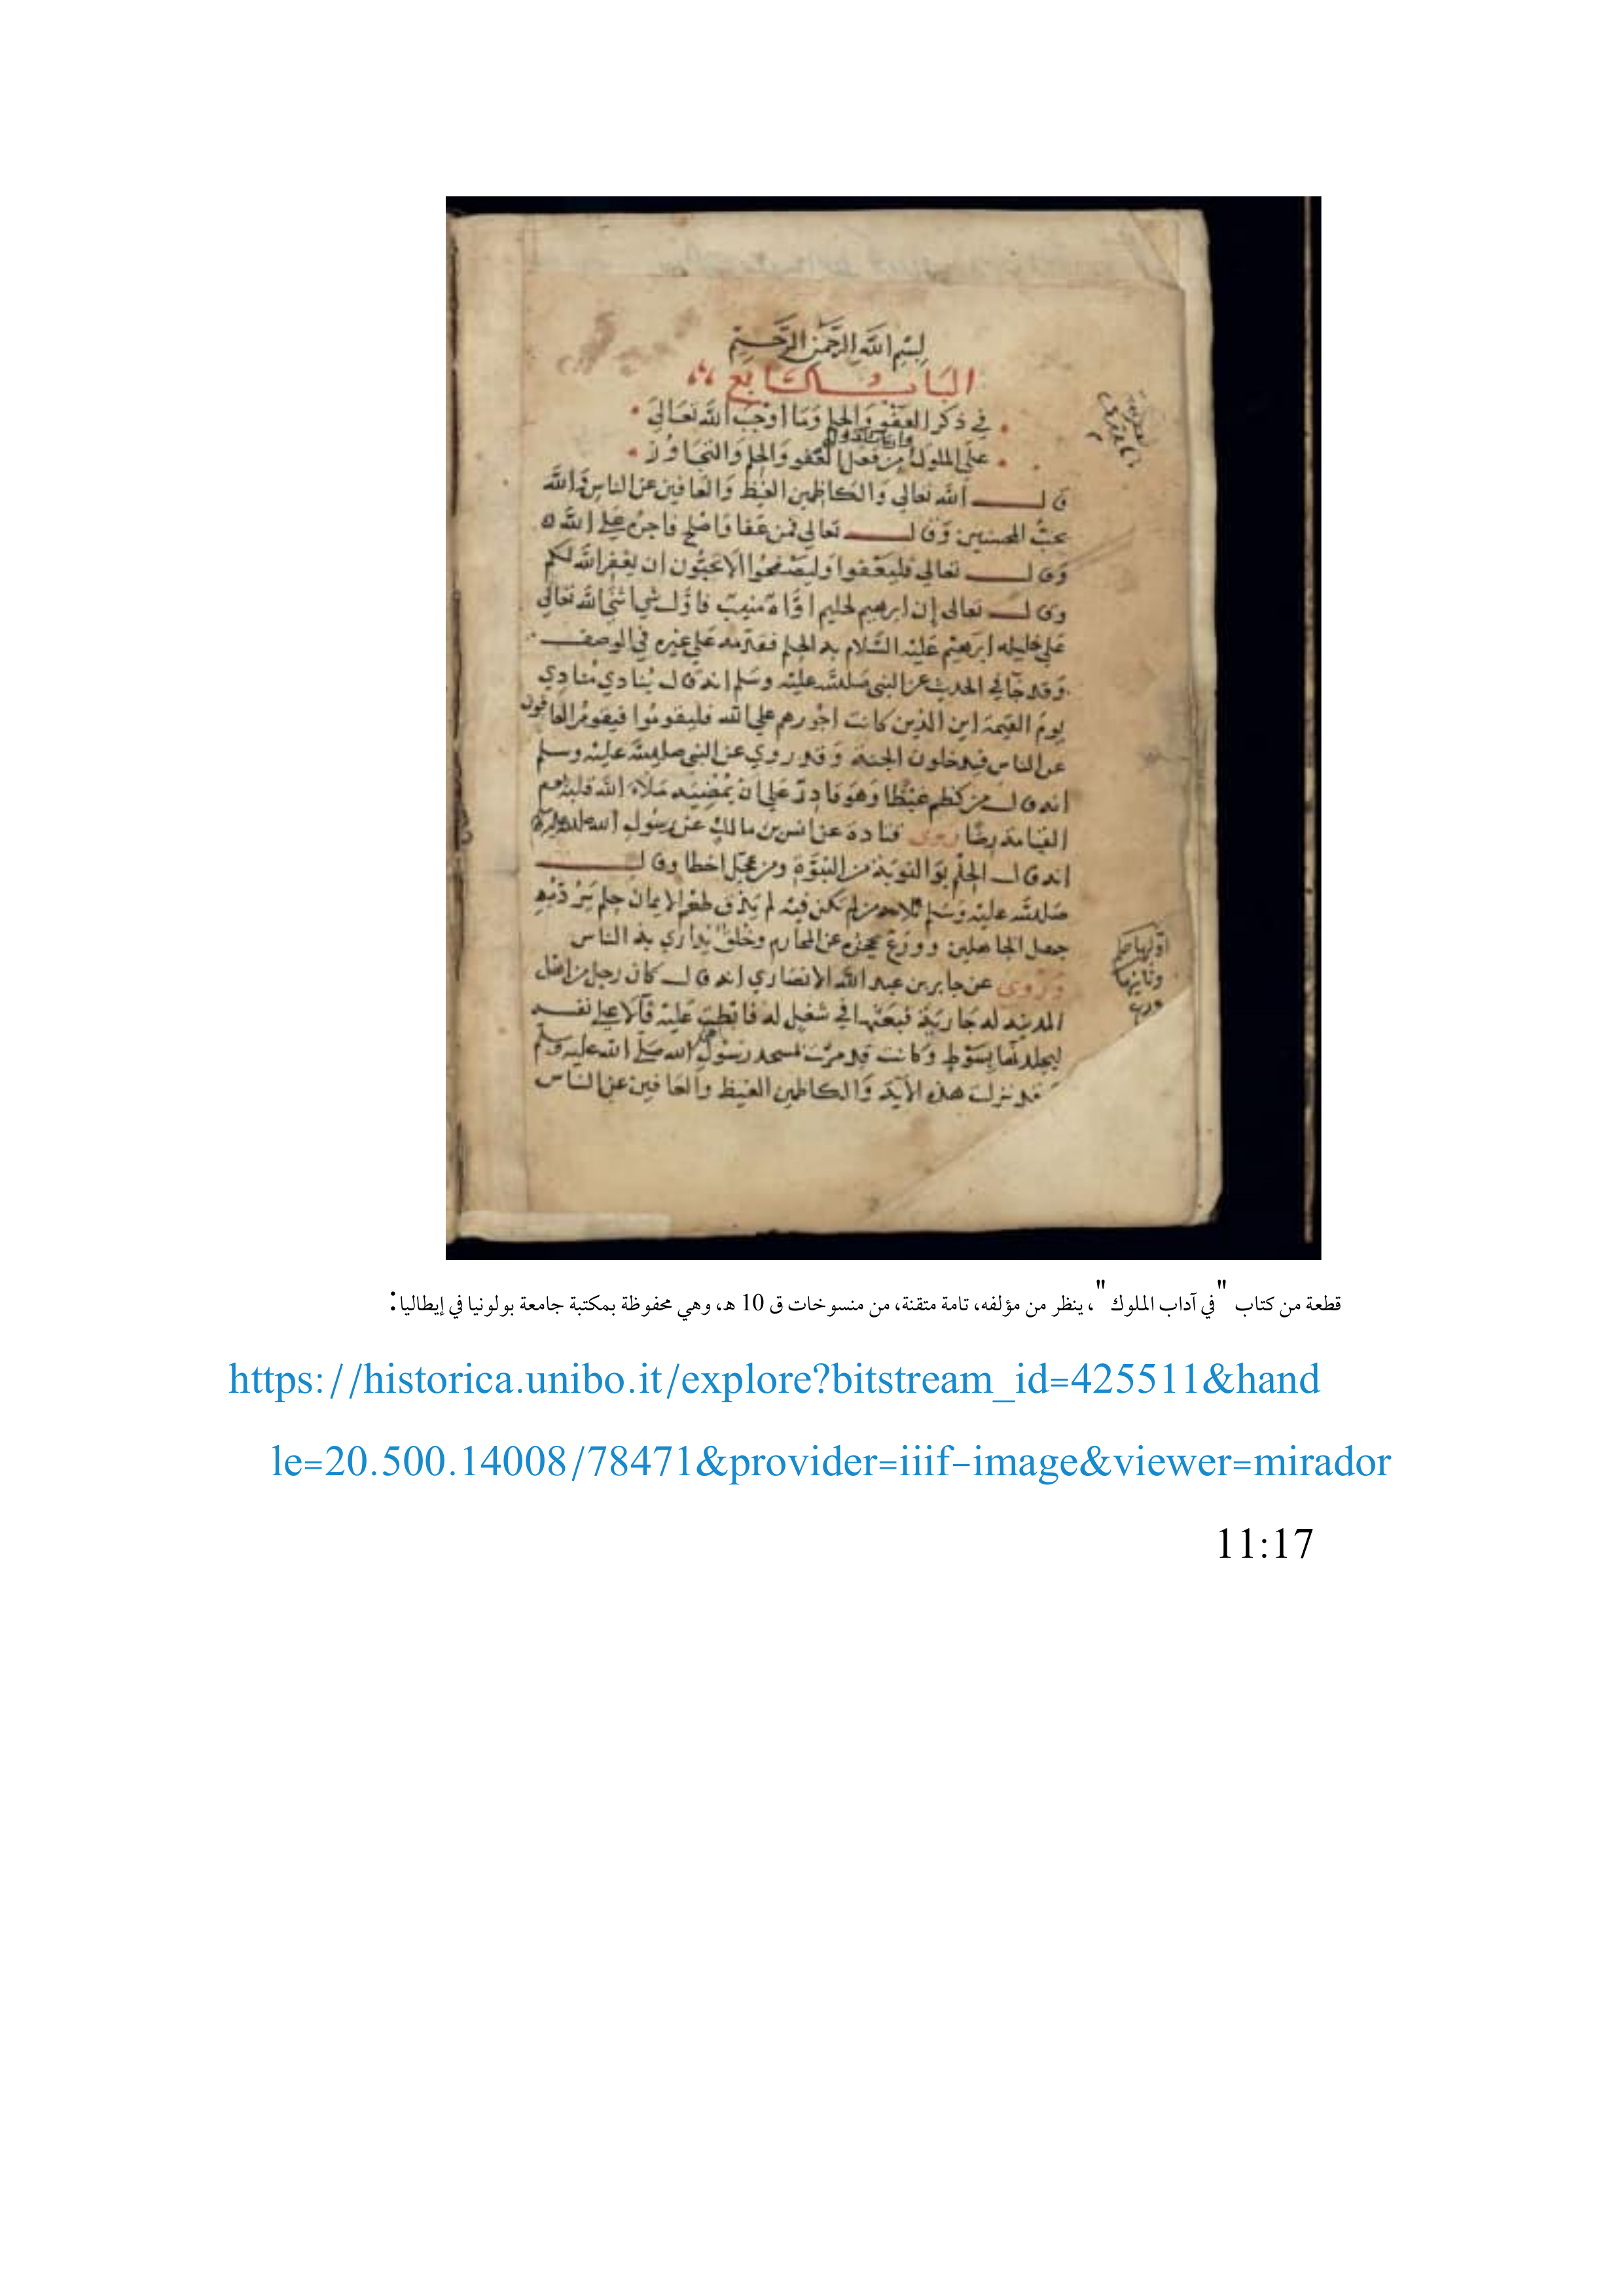 بِسْمِ اللَّهِ الرَّحْمَنِ الرَّحِيمِ
البَابُ السَّابِعُ
في ذكر العَفْوِ وَالحِلم وَمَا اَوْجَبَ اللَّه تَعَالَىَ
علَى الملوك مِن فعل العَفو وَالحِلم وَالتجَاوُز
قال الله تعالي وَالكاظمين الغيظ وَالعَافين عن الناس وَاللَّه
يحبّ المحسنين وَقال تعالي فمن عَفا وَاصْلح فاجرُه عَلي اللَّه
وَقال تعالي فليَعْفوا وَليَصْفحُوا الا تحبّون ان يغفر اللَّه لكم
وقال تعالى إن ابرهيم لحليم اوَّاه منيب فاوّل شي اثنَي اللَّه تعَالي
عَلي خليله ابرَهيم عَليْه السَّلام به الحِلم فقدّمه عَلي غيره في الوصف
وَقد جَآ في الحديث عن النبي صَلي اللَّه عَليْه وسَلم انه قال يُنادي مُنادِي
يومَ القيمة اين الذين كانت اجُورهم علي الله فليقومُوا فيقومُ العَافون
عن الناس فيدخلون الجنة وَقد روي عن النبي صلي اللَّه عليْه وسلم
انه قال من كظم غيْظًا وَهوَ قادِرٌ عَلي انْ يُمْضِيَه مَلأَ اللَّه قلبه يوم
القيَامة رضًا روى قتادة عن انس بن مالك عن رسُول الله
انه قال الحِلْم وَالتوبَة من النبوَّة ومن عجّل اخطا وقال
صَلي اللَّه عليْه وَسَلم ثلاث من لم تكن فيْه لم يَذق طعْم الايمان حِلم يَرُدّ به
جهل الجاهلين ووَرَع يحجزه عن المحارم وخُلق يُداري به الناس
وَرُوى عن جابر بن عبد اللَّه الانصَاري انه قال كان رجل من اهل
المدينه له جَاريَة فبَعَثها في شغل له فابْطت عَليْه فآلا علي نفسه
ليجلدنّها بسَوْط وَكانت قد مرّت بمسجد رَسُول الله صَلي الله عليه وسلم
قد نزلت هذه الآية وَالكاظمين الغيظ والعَافين عن النَاس
اولها حلم
وثانيها
ورع
قطعة من كتاب "في آداب الملوك"، ينظر من مؤلفه، تامة متقنة، من منسوخات ق 10 هـ، وهي محفوظة بمكتبة جامعة بولونيا في إيطاليا:
https://historica.unibo.it/explore?bitstream_id=425511&hand
le=20.500.14008/78471&provider=iiif-image&viewer=mirador
11:17